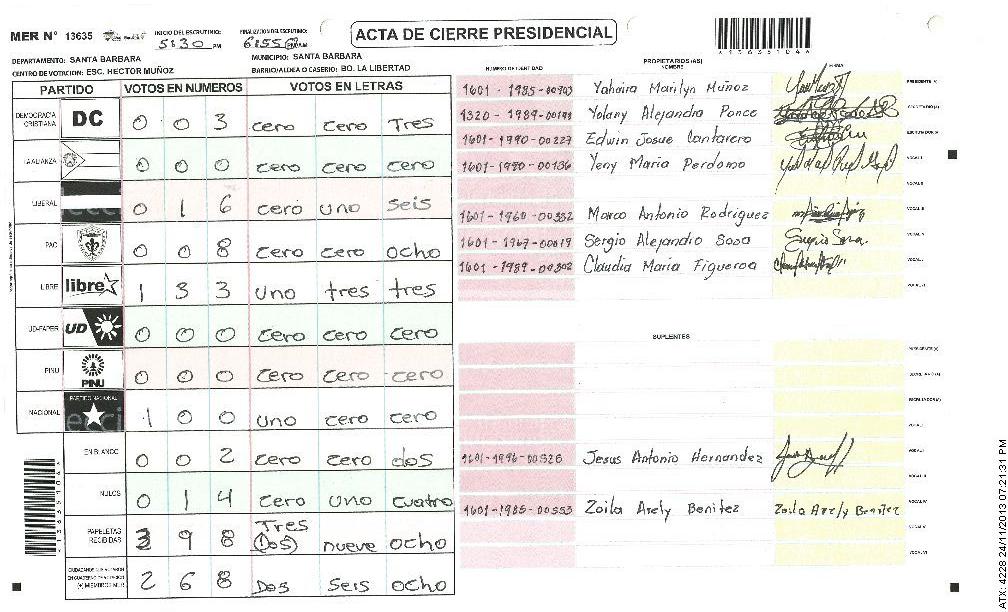 MER N° 13635 INICIO DEL ESCRUTINIO: 5:30 PM FINALIZACION DEL ESCRUTINIO: 6:55 PM
ACTA DE CIERRE PRESIDENCIAL
DEPARTAMENTO: SANTA BARBARA MUNICIPIO: SANTA BARBARA
CENTRO DE VOTACION: ESC. HECTOR MUÑOZ BARRIO/ALDEA O CASERIO: BO. LA LIBERTAD
PARTIDO VOTOS EN NUMEROS VOTOS EN LETRAS
DEMOCRACIA CRISTIANA DC 0 0 3 cero cero Tres
LA ALIANZA 0 0 0 cero cero cero
LIBERAL 0 1 6 cero uno seis
PAC 0 0 8 cero cero ocho
LIBRE libre 1 3 3 uno tres tres
UD-FAPER UD 0 0 0 cero cero cero
PINU PINU 0 0 0 cero cero cero
NACIONAL PARTIDO NACIONAL 1 0 0 uno cero cero
EN BLANCO 0 0 2 cero cero dos
NULOS 0 1 4 cero uno cuatro
PAPELETAS RECIBIDAS 3 9 8 Tres (Dos) nueve ocho
2 6 8 Dos seis ocho
NUMERO DE IDENTIDAD PROPIETARIOS (AS) NOMBRE FIRMA
Yahaira Marilyn Muñoz PRESIDENTE (A)
Yolany Alejandra Ponce SECRETARIO (A)
1601-1990-00227 Edwin Josue Cantarero ESCRUTADOR (A)
1601-1990-00136 Yeny Maria Perdomo VOCAL I
VOCAL II
1601-1960-00332 Marco Antonio Rodriguez VOCAL III
1601-1967-00019 Sergio Alejandro Sosa VOCAL IV
1601-1989-00302 Claudia Maria Figueroa VOCAL V
VOCAL VI
SUPLENTES
PRESIDENTE (A)
SECRETARIO (A)
ESCRUTADOR (A)
VOCAL I
1601-1996-00326 Jesus Antonio Hernandez VOCAL II
VOCAL III
1601-1985-00553 Zoila Arely Benitez Zoila Arely Benitez VOCAL IV
VOCAL V
VOCAL VI
ATX: 4228 24/11/2013 07:21:31 PM